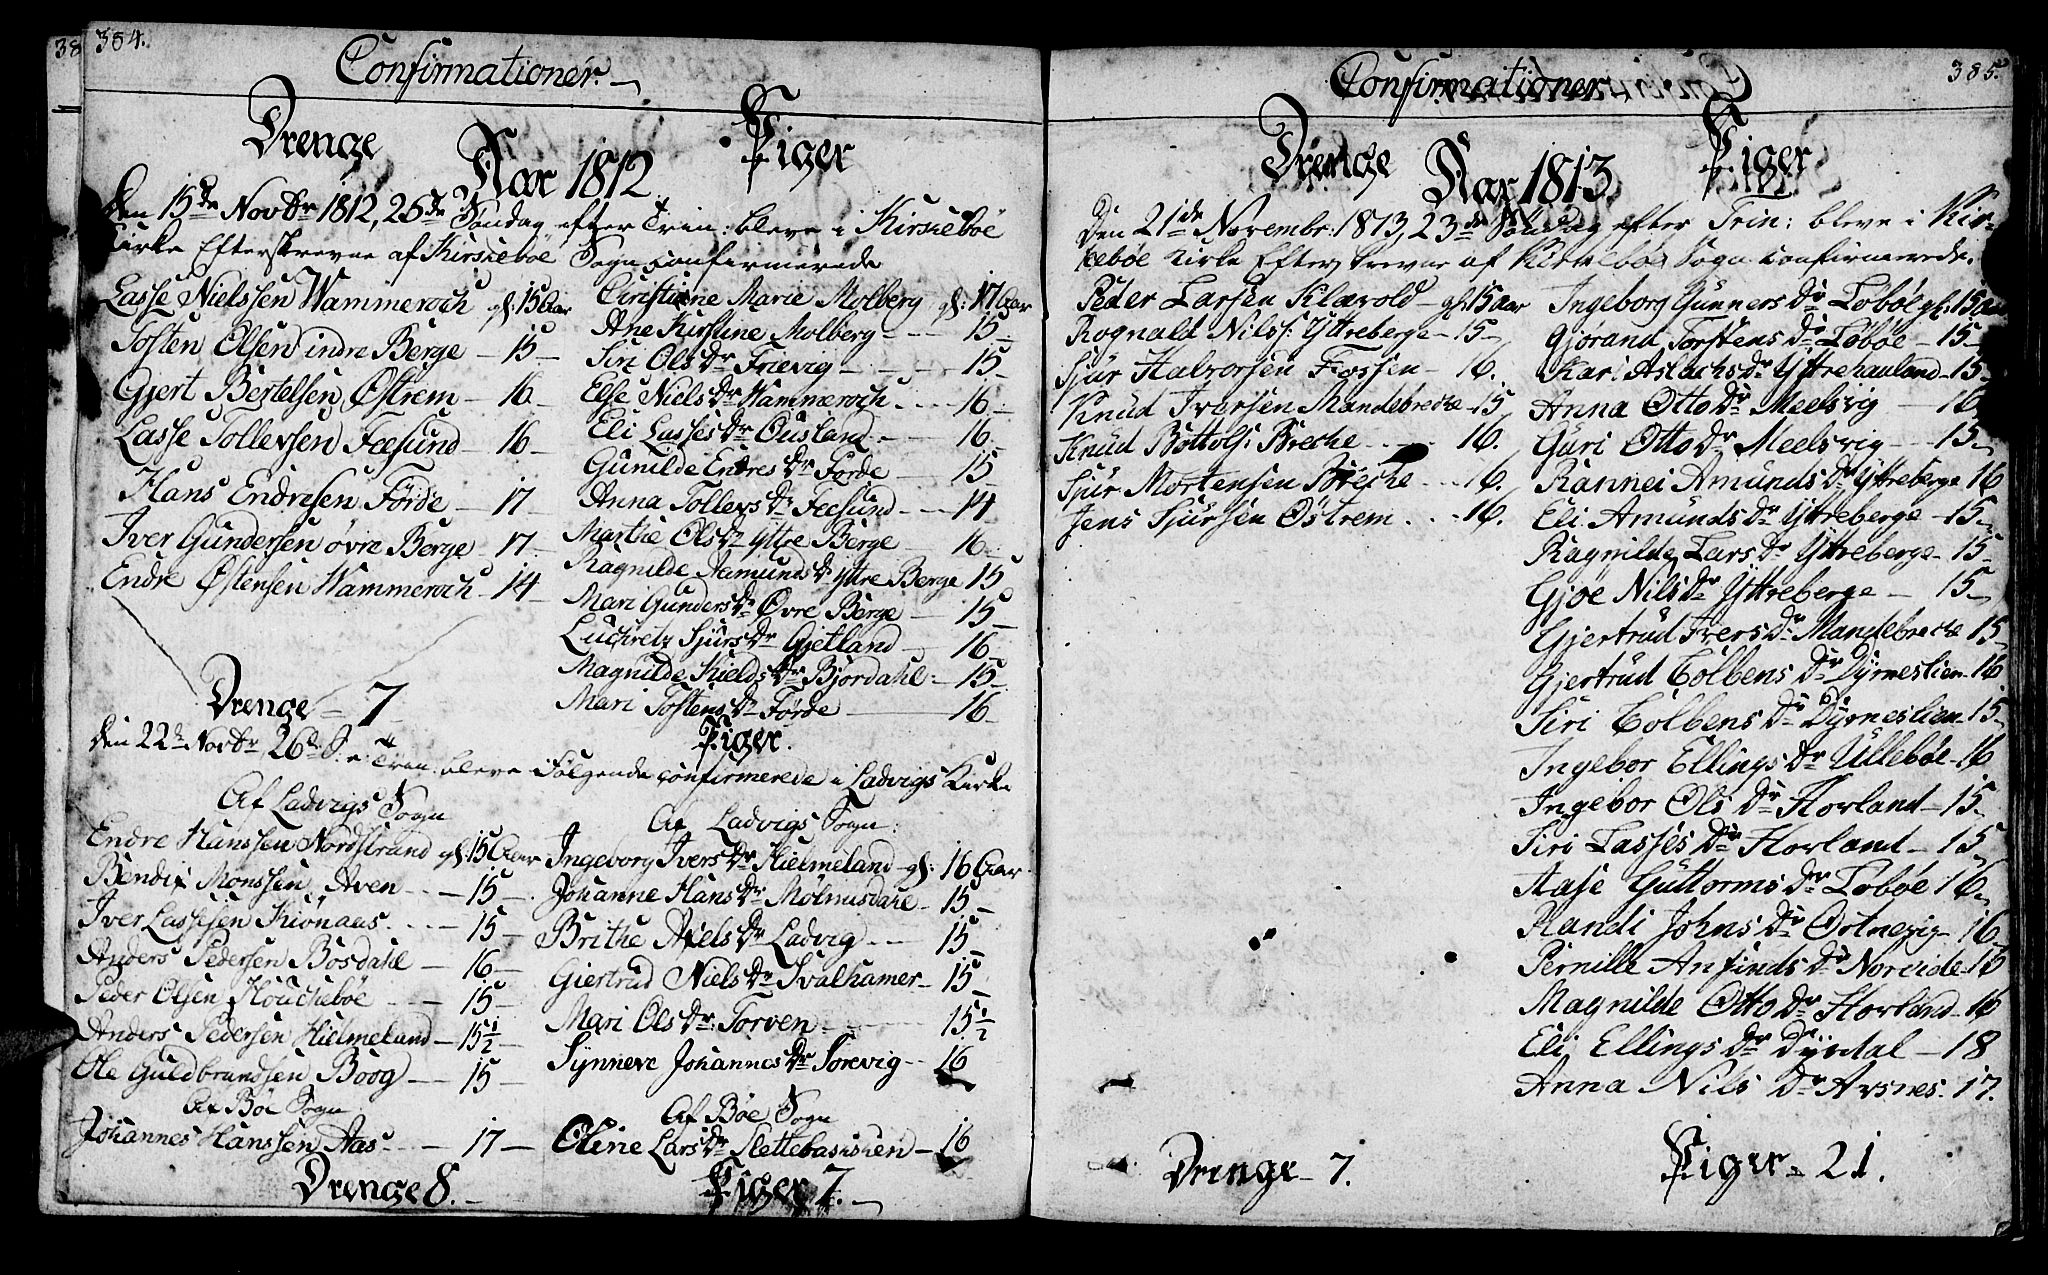 384.
Confirmationer.
Drenge Piger
Aar 1812
Den 15de Novbr 1812, 26de Søndag efter Trin: bleve i Kirkebøe
Kirke Efterskrevne af Kirkebøe Sogn confirmerede
Lasse Nielssen Wammeroch gl: 15 Aar
Tosten Olsen indre Berge – 15 –
Gjert Bertelsen Østrem – 16 –
Lasse Tollevsen Feesund – 16 –
Hans Endresen Förde – 17 –
Iver Gundersen øvre Berge – 17 –
Endre Østensen Wammeroch – 14 –
Drenge – 7
Christiane Marie Molberg gl: 17 Aar
Ane Kirstine Molberg – 15 –
Siri Ols Dr Frævig – 15
Else Niels Dr Wammeroch – 16 –
Eli Lasses Dr Ousland – 16
Gunilde Endres Dr Förde – 15
Anna Tollevs Dr Feesund – 14
Marthe Ols Dr Yttre Berge – 16
Ragnilde Aamunds Dr Yttre Berge 15
Mari Gunders Dr Øvre Berge – 15 –
Sjurs Dr Gjetland – 16 –
Magnilde Kields Dr Bjordahl – 15 –
Mari Tostens Dr Förde – 16
Piger.
den 22de Novbr 26de S. e. Trin: bleve Følgende confirmerede i Ladvigs Kirke
Af Ladvigs Sogn
Endre Hanssen Nordstrand gl: 15 Aar
Bendix Monssen Aven – 15 –
Iver Lassesen Kionaas – 15 –
Anders Pedersen Bosdahl – 16 –
Peder Olsen Houchebøe – 15 –
Anders Pedersen Hielmeland – 15 1/2 –
Ole Guldbrandsen Boog – 15 –
Af Bøe Sogn
Johannes Hanssen Aas – 17 –
Drenge 8. –
Af Ladvigs Sogn:
Ingeborg Ivers Dr Hielmeland gl: 16 Aar
Johanne Hans Dr Molmesdahl – 15 –
Brithe Axels Dr Ladvig – 15
Giertrud Niels Dr Svalhamer – 15 –
Mari Ols Dr Torven – 15 1/2
Synneve Johannes Dr Sorevig – 16
Af Bøe Sogn
Oline Lars Dr Slettebaskien – 16
Piger 7. –
385.
Confirmationer
Drenge Piger
Aar 1813
Den 21de Novembr: 1813, 23de Søndag efter Trin: bleve i Kir-
kebøe Kirke Efterskrevne af Kirkebøe Sogn confirmerede.
Peder Larsen Klævold – gl: 15 aar
Rognald Nilss: Yttreberge – 15 –
Sjur Halvorsen Fossen – 16.
Knud Iversen Mandebreche – 15
Knud Bottolfs: Breche – 16.
Sjur Mortensen Breche – 16.
Jens Sjursen Østrem – 16.
Drenge – 7.
Ingeborg Gunners Dr Løbøe gl: 15 aar
Gjørand Torstens Dr Løbøe – 15 –
Kari Aslachs Dr Yttrehauland – 15
Anna Otto Dr Meelsvig – 16
Guri Otto Dr Meelsvig – 15 –
Rannei Amunds Dr Yttreberge 16
Eli Amunds Dr Yttreberge – 15 –
Ragnilde Lars Dr Yttreberge – 15
Gjøe Nils Dr Yttreberge – 15 –
Gjertrud Ivers Dr Mandebreche 15 –
Gjertrud Colbens Dr Dyrneslien – 16
Siri Colbens Dr Dyrneslien – 15 –
Ingebor Ellings Dr Ullebøe – 16
Ingebor Ols Dr Horland – 15
Siri Lasses Dr Horland – 15
Aase Guttorms Dr Løbøe 16 –
Randi Johns Dr Ortnevig – 16
Pernille Anfinds Dr Norvide – 15
Magnilde Otto Dr Horland – 16
Eli Ellings Dr Dyrdal – 18
Anna Nils Dr Avsnes. 17.
Piger – 21.